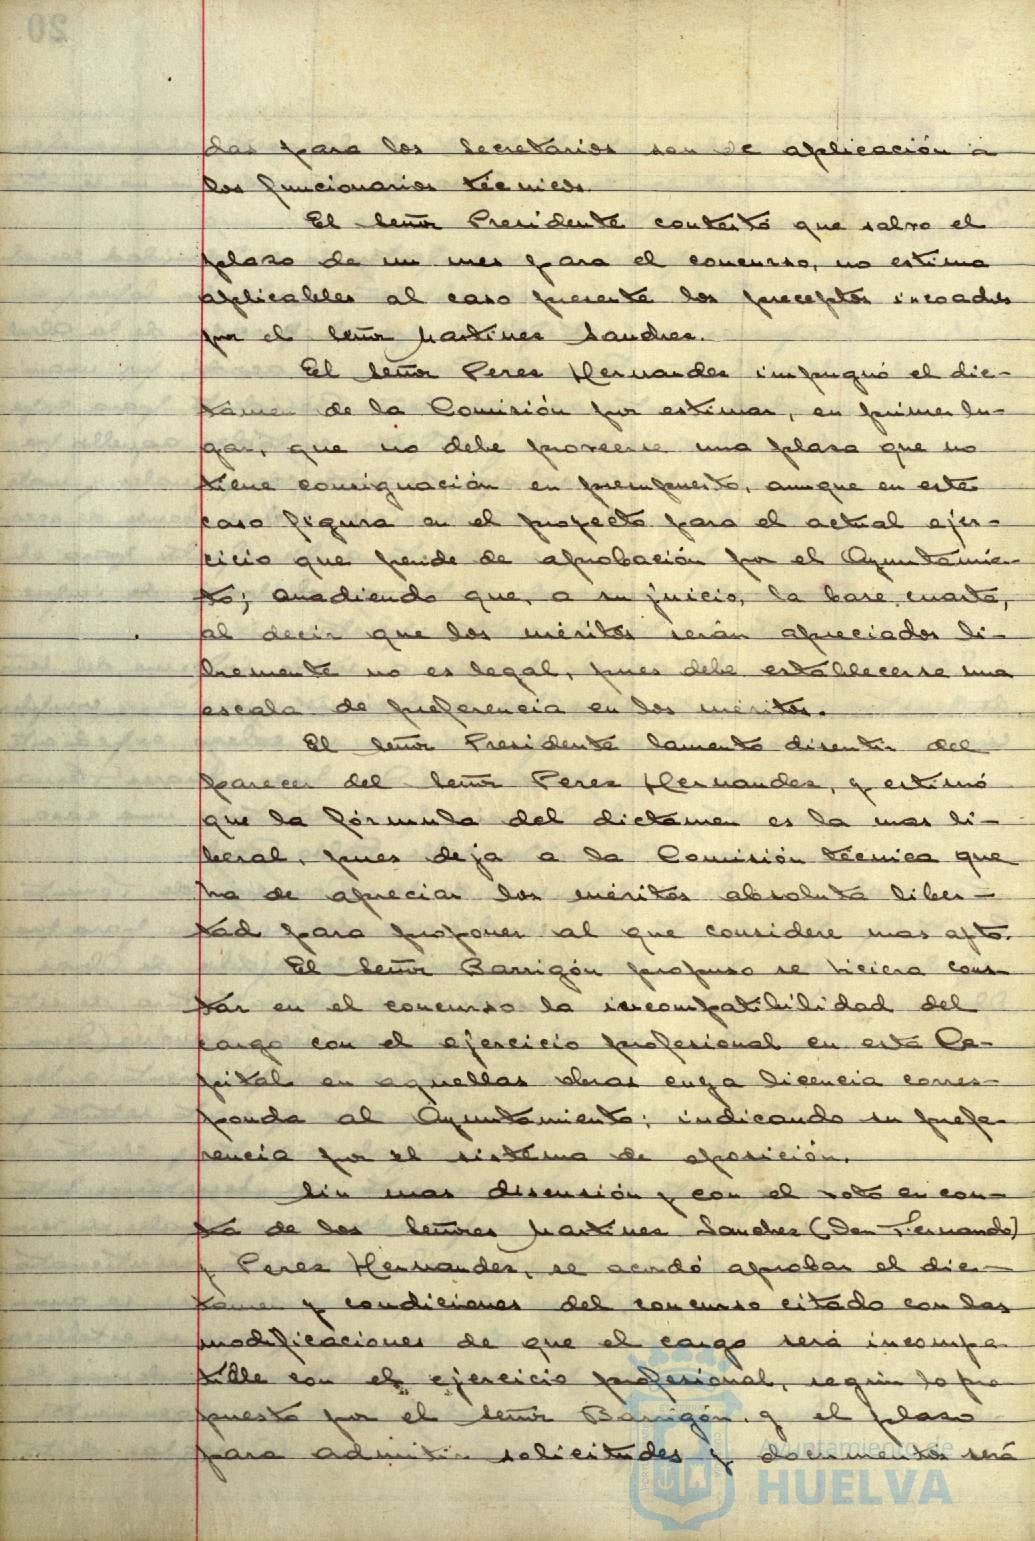 das para los secretarios son de aplicación a
los funcionarios técnicos.
El Señor Presidente contestó que salvo el
plazo de un mes para el concurso, no estima
aplicables al caso presente los preceptos incoados
por el Señor Martines Sanches.
El Señor Peres Hernandes impugnó el dic-
tamen de la Comisión por estimar, en primer lu-
gar, que no debe proveerse una plasa que no
tiene consignación en presupuesto, aunque en este
caso figura en el proyecto para el actual ejer-
cicio que pende de aprobación por el Ayuntamien-
to; anadiendo que, a su juicio, la base cuarta,
al decir que los méritos serán apreciados li-
bremente no es legal, pues debe establecerse una
escala de preferencia en los méritos.
El Señor Presidente lamentó disentir del
parecer del Señor Peres Hernandes, y estimó
que la fórmula del dictámen es la mas li-
beral, pues deja a la Comisión técnica que
ha de apreciar los méritos absoluta liber-
tad para proponer al que considere mas apto.
El Señor Barrigón propuso se hiciera cons-
tar en el concurso la incompatibilidad del
cargo con el ejercicio profesional en esta Ca-
pital en aquellas obras cuya licencia corres-
ponda al Ayuntamiento; indicando su prefe-
rencia por el sistema de oposición.
Sin mas discusión y con el voto en con-
tra de los Señores Martines Sanches (Don Fernando)
y Peres Hernandes, se acordó aprobar el dic-
tamen y condiciones del concurso citado con las
modificaciones de que el cargo será incompa-
tible con el ejercicio profesional, según lo pro
puesto por el Señor Barrigón, y el plaso
para admitir solicitudes y documentos será
Ayuntamiento de
HUELVA